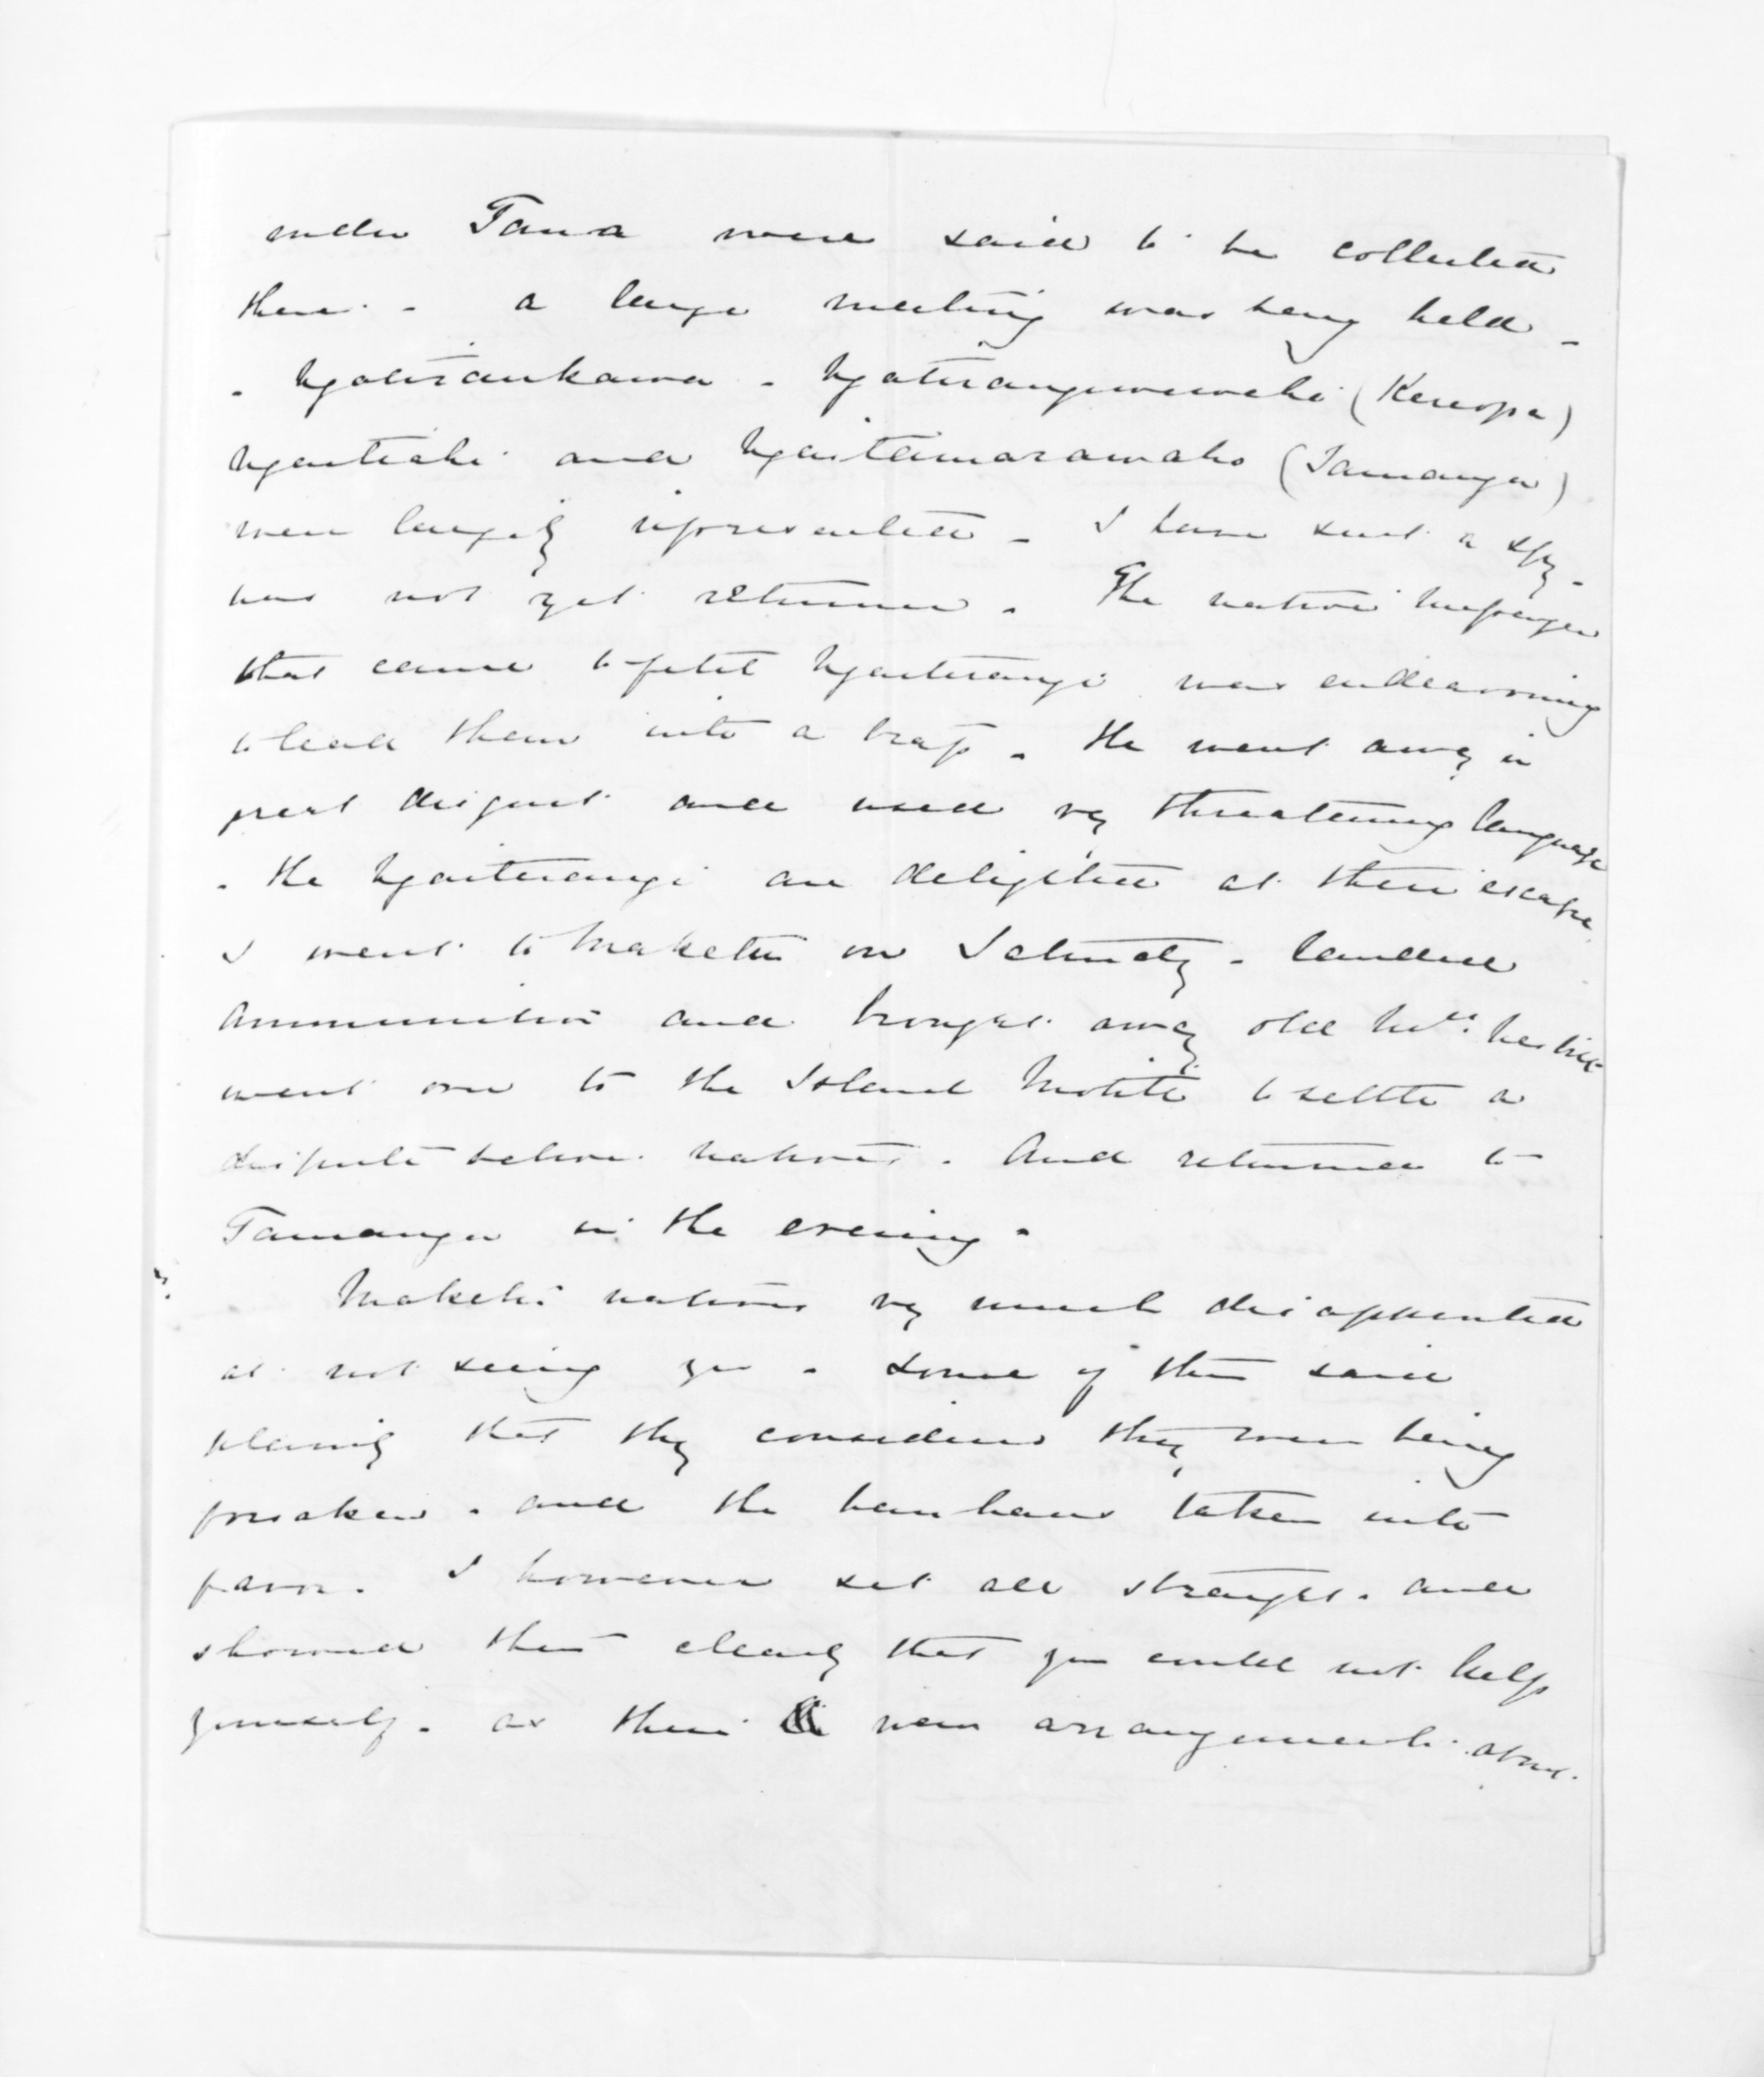 under Tana were said to be collected
there. - a large meeting was being held -
- Ngatiraukawa - Ngatirangiwewehi (Kereopa)
Ngaiteahi and Ngaitamarawaho (Tauranga)
were largely represented - I have sent a spy -
has not yet returned. The native messenger
that came to fetch Ngaiterangi was endeavoring
to lead them into a trap. He went away in
great disgust and used vy threatening language
- the Ngaiterangi are delighted at their escape
I went to Maketu on Saturday - landed
ammunition and brought away old Mrs.
went over to the Island Motiti to settle a
dispute between natives. And returned to
Tauranga in the evening.
Maketu natives vy much disappointed
at not seeing you - some of them said
plainly that they considered they were being
forsaken - and the hau haus taken into
favor. I however set all straight. and
showed them clearly that you could not help
yourself. as there were arrangements about